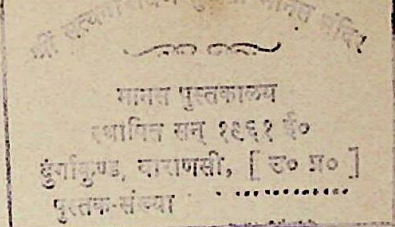 श्री सत्यनारायण तुलसी मानस मंदिर
मानस पुस्तकालय
स्थापित सन् १९६१ ई०
दुर्गाकुण्ड, वाराणसी, [ उ० प्र० ]
पुस्तक-संख्या ..................